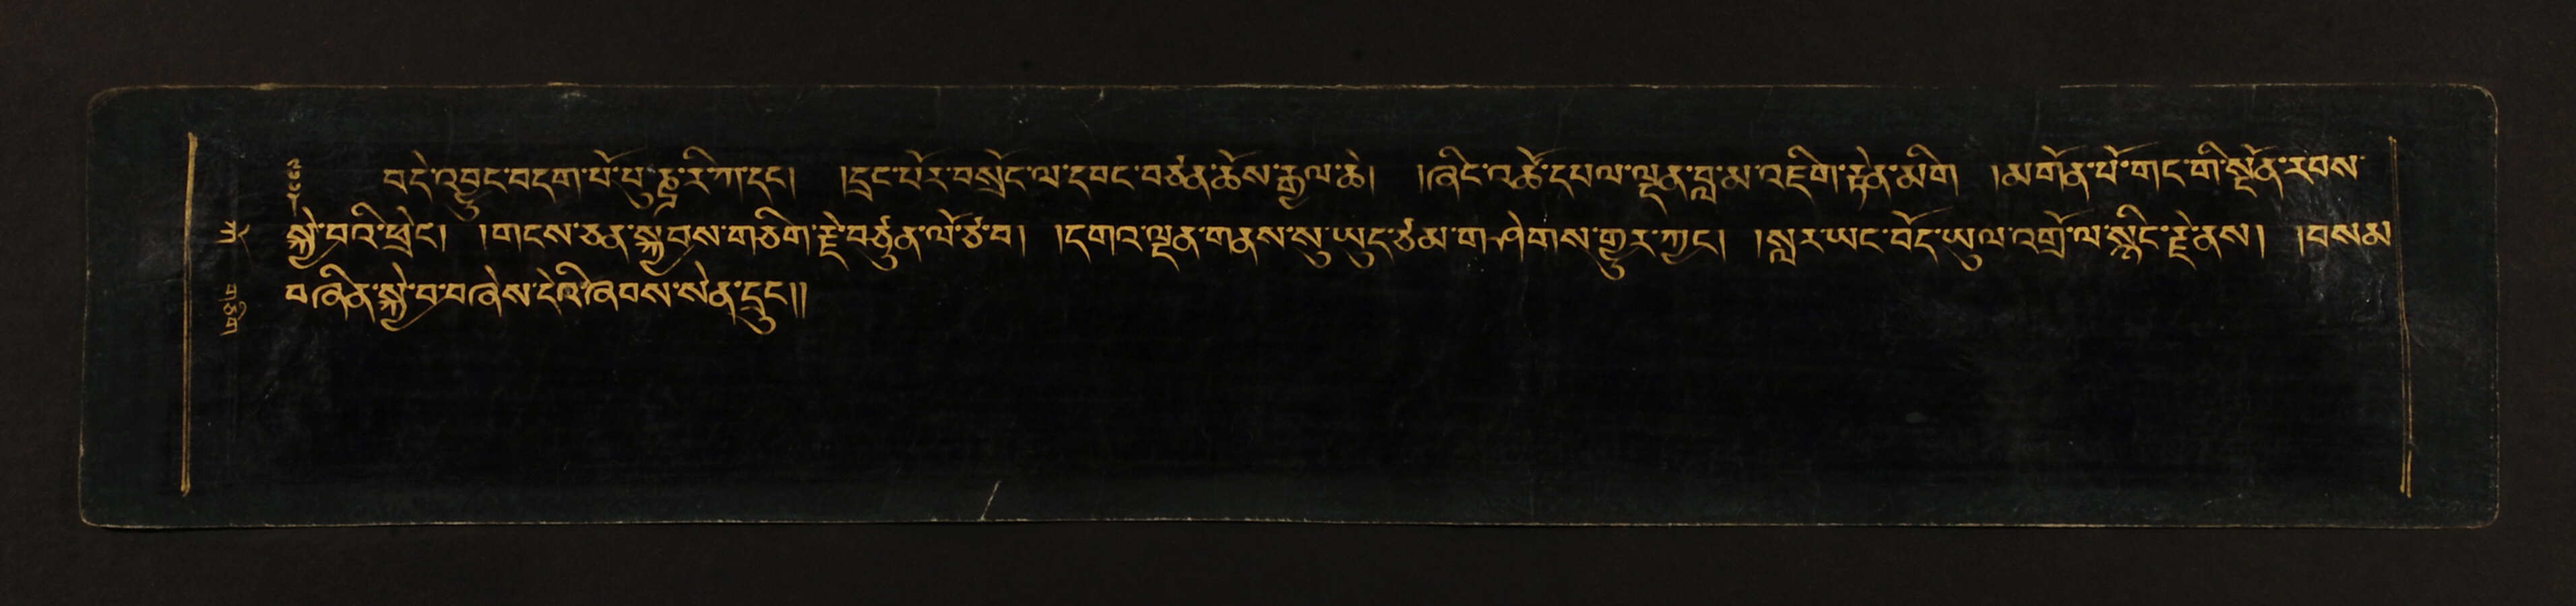 ༄༅། བདེ་འབྱུང་བདག་པོ་པུཎྜ་རི་ཀ་དང༌། །དྲང་པོར་བསྲོང་ལ་དབང་བཙན་ཆོས་རྒྱལ་ཆེ། །ཞིང་འཚོ་དཔལ་ལྡན་བླ་མ་འཇིག་རྟེན་མིག །མགོན་པོ་གང་གི་སྔོན་རབས་
སྐྱེ་བའི་ཕྲེང༌། །གངས་ཅན་སྐྱབས་གཅིག་རྗེ་བཙུན་ལོ་ཙཱ་བ། །དགའ་ལྡན་གནས་སུ་ཡུད་ཙམ་གཤེགས་གྱུར་ཀྱང༌། །སླར་ཡང་བོད་ཡུལ་འགྲོ་ལ་སྙིང་རྗེ་ནས། །བསམ
བཞིན་སྐྱེ་བ་བཞེས་དེའི་ཞབས་སེན་དྲུང༌།།